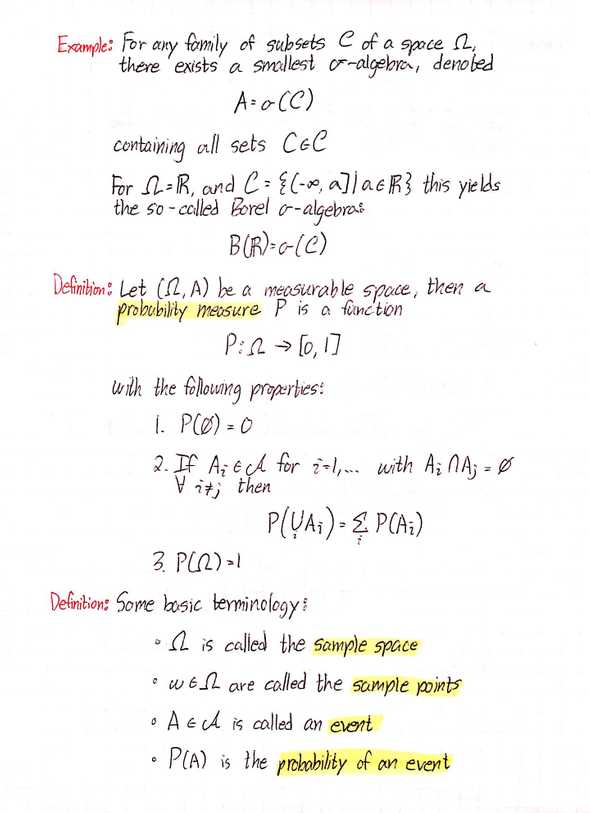 Example: For any family of subsets C of a space Ω,
there exists a smallest σ-algebra, denoted
A = σ(C)
containing all sets C ∈ C
For Ω = ℝ, and C = {(-∞, a] | a ∈ ℝ} this yields
the so-called Borel σ-algebra:
B(ℝ) = σ(C)
Definition: Let (Ω, A) be a measurable space, then a
probability measure P is a function
P: Ω → [0, 1]
with the following properties:
1. P(∅) = 0
2. If Aᵢ ∈ 𝒜 for i=1,... with Aᵢ ∩ Aⱼ = ∅
∀ i≠j then
P(∪ᵢ Aᵢ) = Σᵢ P(Aᵢ)
3. P(Ω) = 1
Definition: Some basic terminology:
• Ω is called the sample space
• ω ∈ Ω are called the sample points
• A ∈ 𝒜 is called an event
• P(A) is the probability of an event